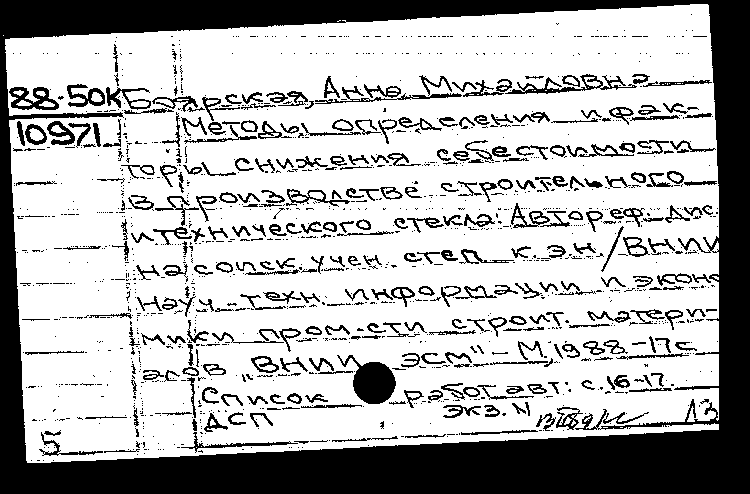 88-50К Боярская, Анна Михайловна
10971 Методы определения и фак-
торы снижения себестоимости
в производстве строительного
и технического стекла: Автореф. дис
на соиск. учен. степ. к.э.н. / ВНИИ
науч.-техн. информации и эконо
мики пром-сти строит. матери-
алов "ВНИИ ЭСМ" - М, 1988 - 17с
Список работ авт: с. 16-17.
ДСП экз. N 13
5